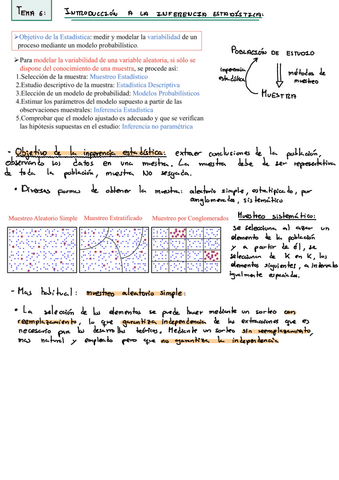 TEMA 6: INTRODUCCIÓN A LA INFERENCIA ESTADÍSTICA:
➢Objetivo de la Estadística: medir y modelar la variabilidad de un
proceso mediante un modelo probabilístico.
➢Para modelar la variabilidad de una variable aleatoria, si sólo se
dispone del conocimiento de una muestra, se procede así:
1.Selección de la muestra: Muestreo Estadístico
2.Estudio descriptivo de la muestra: Estadística Descriptiva
3.Elección de un modelo de probabilidad: Modelos Probabilísticos
4.Estimar los parámetros del modelo supuesto a partir de las
observaciones muestrales: Inferencia Estadística
5.Comprobar que el modelo ajustado es adecuado y que se verifican
las hipótesis supuestas en el estudio: Inferencia no paramétrica
POBLACIÓN DE ESTUDIO
inferencia
estadística
métodos de
muestreo
MUESTRA
- Objetivo de la inferencia estadística: extraer conclusiones de la población,
observando los datos en una muestra. La muestra debe de ser representativa
de toda la población, muestra NO sesgada.
• Diversas formas de obtener la muestra: aleatorio simple, estratificado, por
conglomerados, sistemático
Muestreo Aleatorio Simple
Muestreo Estratificado
Muestreo por Conglomerados
Muestreo sistemático:
Se selecciona al azar un
elemento de la población
y a partir de él, se
seleccionan de K en K, los
elementos siguientes, a intervalo
igualmente espaciado.
- Mas habitual: muestreo aleatorio simple:
• La selección de los elementos se puede hacer mediante un sorteo con
reemplazamiento, lo que garantiza independencia de las extracciones que es
necesario para los desarrollos teóricos. Mediante un sorteo sin reemplazamiento,
mas natural y empleado pero que no garantiza la independencia